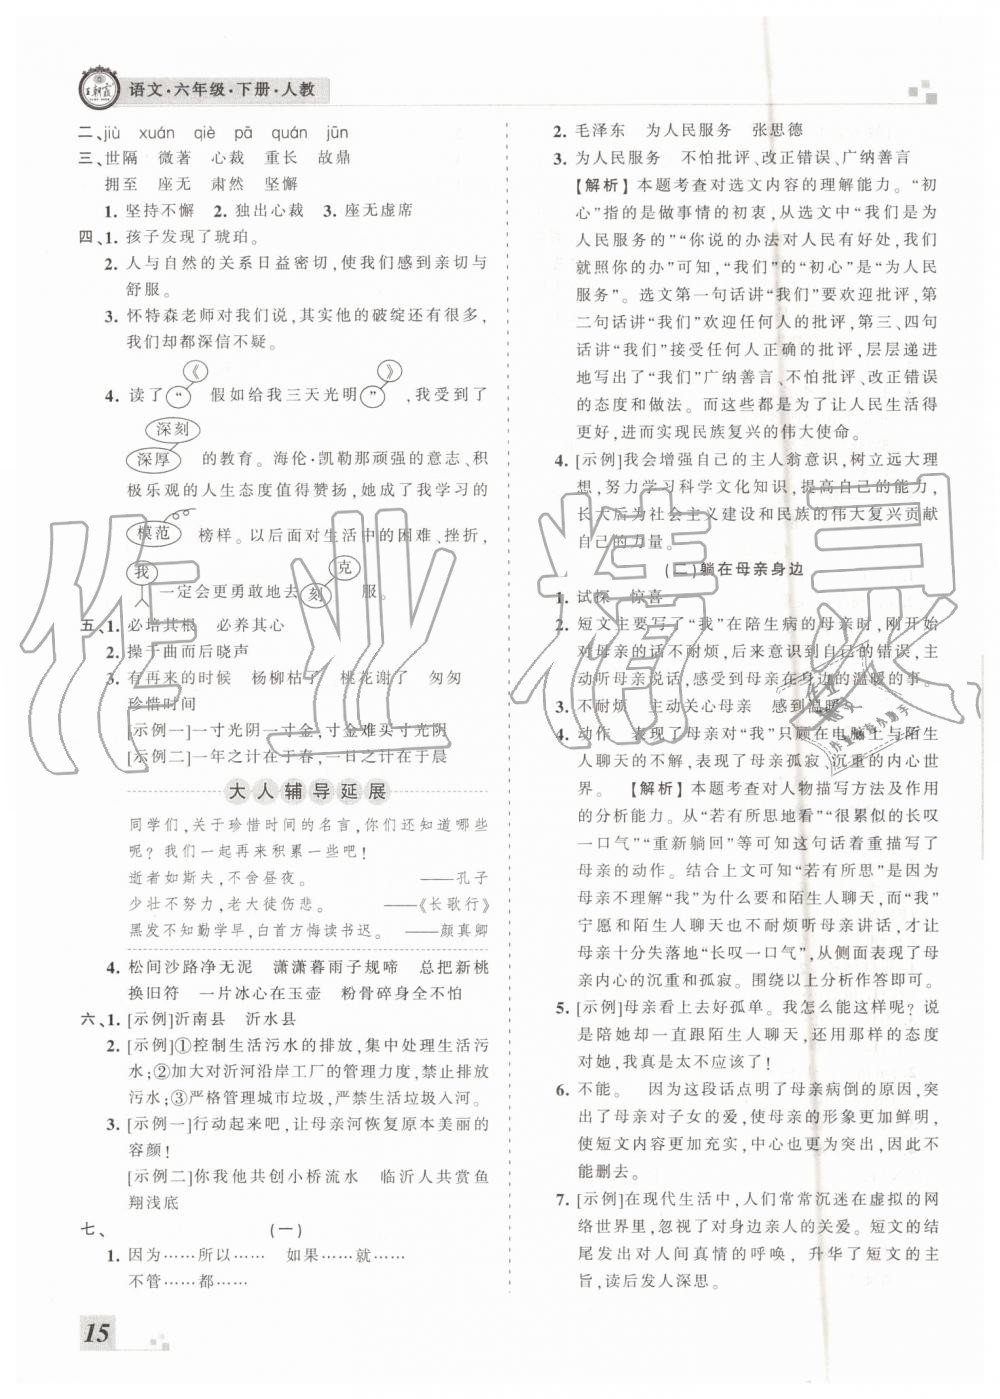 王朝霞
语文·六年级·下册·人教
二、jiù xuán qiè pā quán jūn
三、世隔 微著 心裁 重长 故鼎
拥至 座无 肃然 坚懈
1. 坚持不懈 2. 独出心裁 3. 座无虚席
四、1. 孩子发现了琥珀。
2. 人与自然的关系日益密切,使我们感到亲切与
舒服。
3. 怀特森老师对我们说,其实他的破绽还有很多,
我们却都深信不疑。
《 》
4. 读了“ 假如给我三天光明”,我受到了
深刻
深厚 的教育。海伦·凯勒那顽强的意志、积
极乐观的人生态度值得赞扬,她成了我学习的
模范 榜样。以后面对生活中的困难、挫折,
我 克
人 一定会更勇敢地去刻服。
五、1. 必培其根 必养其心
2. 操千曲而后晓声
3. 有再来的时候 杨柳枯了 桃花谢了 匆匆
珍惜时间
[示例一]一寸光阴一寸金,寸金难买寸光阴
[示例二]一年之计在于春,一日之计在于晨
大人辅导延展
同学们,关于珍惜时间的名言,你们还知道哪些
呢?我们一起再来积累一些吧!
逝者如斯夫,不舍昼夜。 ——孔子
少壮不努力,老大徒伤悲。 ——《长歌行》
黑发不知勤学早,白首方悔读书迟。 ——颜真卿
4. 松间沙路净无泥 潇潇暮雨子规啼 总把新桃
换旧符 一片冰心在玉壶 粉骨碎身全不怕
六、1. [示例]沂南县 沂水县
2. [示例]①控制生活污水的排放,集中处理生活污
水;②加大对沂河沿岸工厂的管理力度,禁止排放
污水;③严格管理城市垃圾,严禁生活垃圾入河。
3. [示例一]行动起来吧,让母亲河恢复原本美丽的
容颜!
[示例二]你我他共创小桥流水 临沂人共赏鱼
翔浅底
七、 (一)
1. 因为……所以…… 如果……就……
不管……都……
15
2. 毛泽东 为人民服务 张思德
3. 为人民服务 不怕批评、改正错误、广纳善言
【解析】本题考查对选文内容的理解能力。“初
心”指的是做事情的初衷,从选文中“我们是为
人民服务的”“你说的办法对人民有好处,我们
就照你的办”可知,“我们”的“初心”是“为人民
服务”。选文第一句话讲“我们”要欢迎批评,第
二句话讲“我们”欢迎任何人的批评,第三、四句
话讲“我们”接受任何人正确的批评,层层递进
地写出了“我们”广纳善言、不怕批评、改正错误
的态度和做法。而这些都是为了让人民生活得
更好,进而实现民族复兴的伟大使命。
4. [示例]我会增强自己的主人翁意识,树立远大理
想,努力学习科学文化知识,提高自己的能力,
长大后为社会主义建设和民族的伟大复兴贡献
自己的力量。
(二)躺在母亲身边
1. 试探 惊喜
2. 短文主要写了“我”在陪生病的母亲时,刚开始
对母亲的话不耐烦,后来意识到自己的错误,主
动听母亲说话,感受到母亲在身边的温暖的事。
3. 不耐烦 主动关心母亲 感到温暖
4. 动作 表现了母亲对“我”只顾在电脑上与陌生
人聊天的不解,表现出母亲孤寂、沉重的内心世
界。 【解析】本题考查对人物描写方法及作用
的分析能力。从“若有所思地看”“很累似的长叹
一口气”“重新躺回”等可知这句话着重描写了
母亲的动作。结合上文可知“若有所思”是母亲
不理解“我”为什么要和陌生人聊天,而“我”
宁愿和陌生人聊天也不耐烦听母亲讲话,才让
母亲十分失落地“长叹一口气”,从侧面表现了母
亲内心的沉重和孤寂。围绕以上分析作答即可。
5. [示例]母亲看上去好孤单。我怎么能这样呢?说
是陪她却一直跟陌生人聊天,还用那样的态度
对她,我真是太不应该了!
6. 不能。 因为这段话点明了母亲病倒的原因,突
出了母亲对子女的爱,使母亲的形象更加鲜明,
使短文内容更加充实,中心也更为突出,因此不
能删去。
7. [示例]在现代生活中,人们常常沉迷在虚拟的网
络世界里,忽视了对身边亲人的关爱。短文的结
尾发出对人间真情的呼唤,升华了短文的主
旨,读后发人深思。
作业精灵